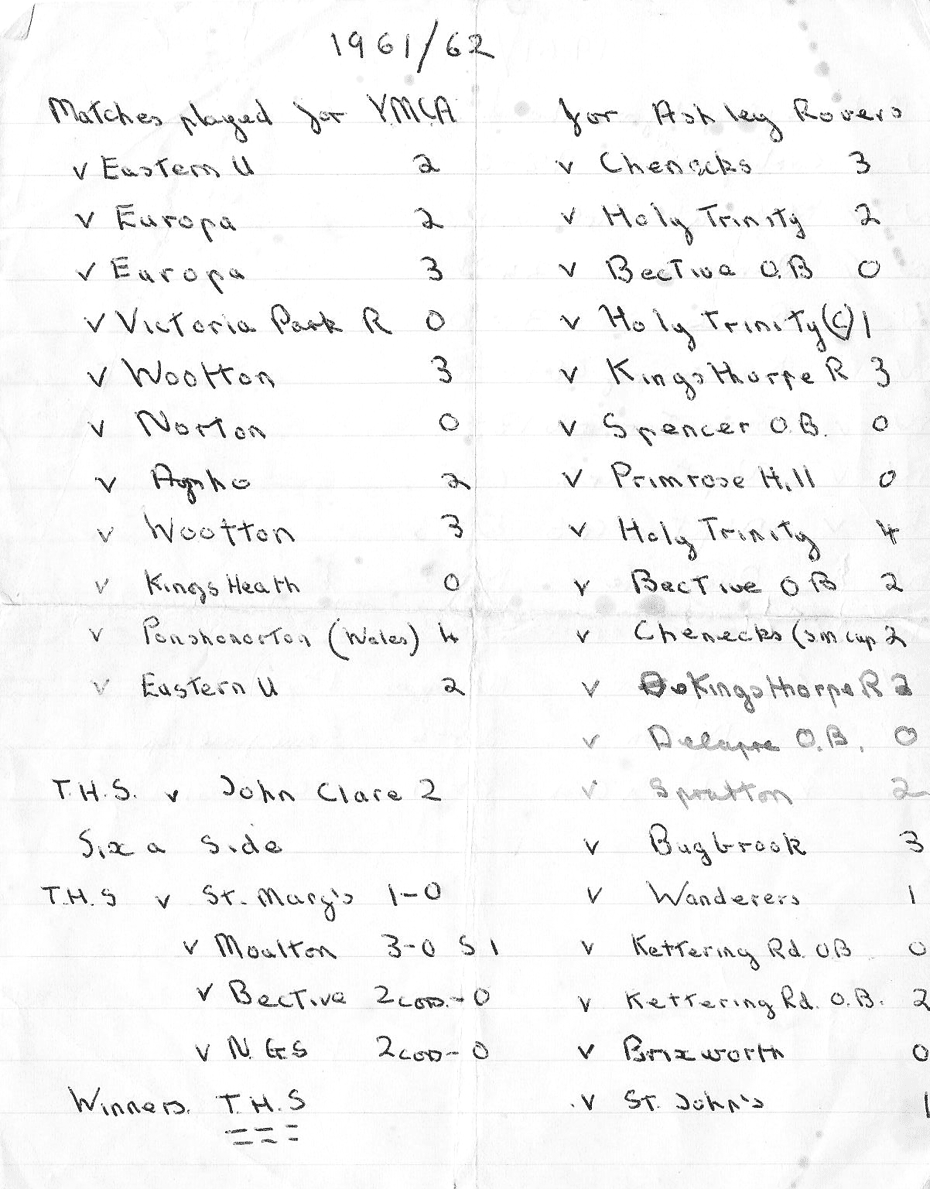 1961/62
Matches played for YMCA
v Eastern U 2
v Europa 2
v Europa 3
v Victoria Park R 0
v Wootton 3
v Norton 0
v 2
v Wootton 3
v Kings Heath 0
v (Wales) 4
v Eastern U 2
T.H.S. v John Clare 2
Six a side
T.H.S v St. Mary's 1-0
v Moulton 3-0 S 1
v Bective 2 - 0
v N.G.S 2 - 0
Winners. T.H.S
for Ashley Rovers
v Chenecks 3
v Holy Trinity 2
v Bective O.B 0
v Holy Trinity (C) 1
v Kingsthorpe R 3
v Spencer O.B. 0
v Primrose Hill 0
v Holy Trinity 4
v Bective O B 2
v Chenecks (sm cup 2
v Kingsthorpe R 2
v Delapre O.B. 0
v Spratton 2
v Bugbrook 3
v Wanderers 1
v Kettering Rd. OB 0
v Kettering Rd. O.B. 2
v Brixworth 0
v St. John's 1